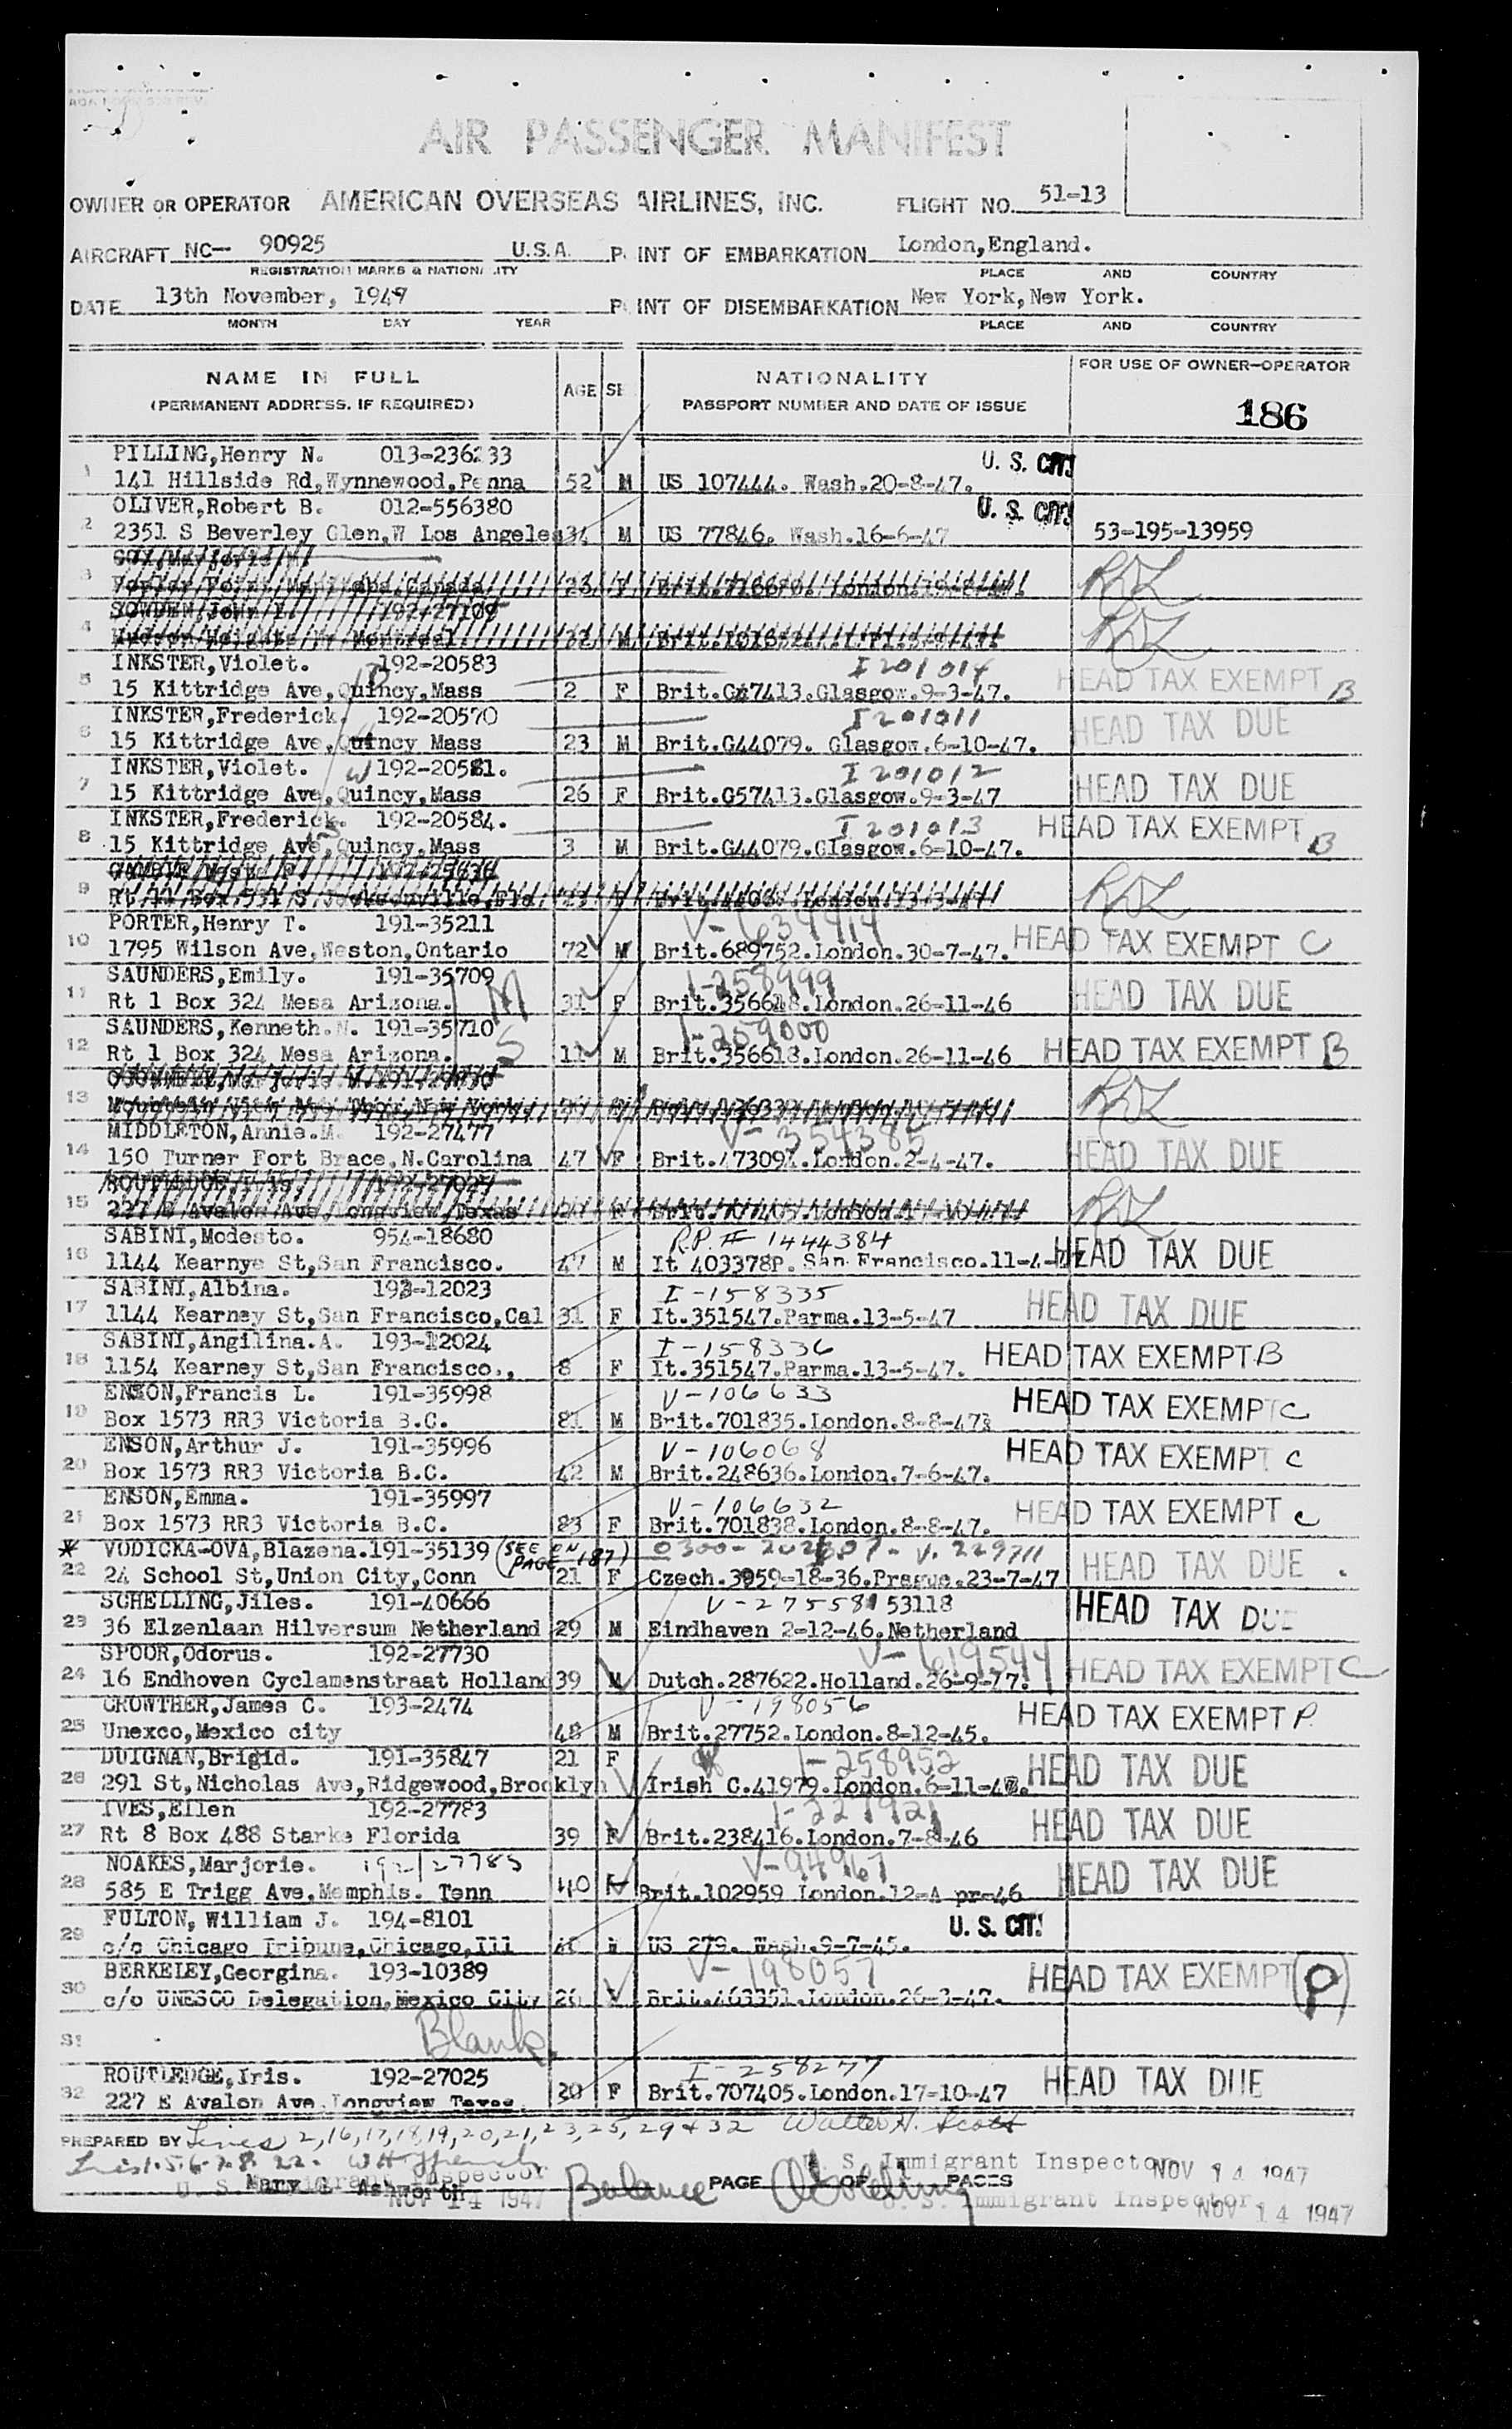 AIR PASSENGER MANIFEST
OWNER OR OPERATOR AMERICAN OVERSEAS AIRLINES, INC. FLIGHT NO. 51-13
AIRCRAFT NC- 90925 U.S.A. P INT OF EMBARKATION London,England.
REGISTRATION MARKS & NATIONALITY PLACE AND COUNTRY
DATE 13th November, 1947 P INT OF DISEMBARKATION New York,New York.
MONTH DAY YEAR PLACE AND COUNTRY
NAME IN FULL AGE SE NATIONALITY FOR USE OF OWNER-OPERATOR
(PERMANENT ADDRESS, IF REQUIRED) PASSPORT NUMBER AND DATE OF ISSUE 186
PILLING,Henry N. 013-236233 U. S. CIT.
1 141 Hillside Rd,Wynnewood,Penna 52 M US 107444. Wash.20-8-47.
OLIVER,Robert B. 012-556380 U. S. CIT.
2 2351 S Beverley Glen,W Los Angeles 34 M US 77846. Wash.16-6-47 53-195-13959
3 23 F
SOWDEN,John 192-27109
4 Hudson Heights Montreal. 32 M
INKSTER,Violet. 192-20583 I 201014
5 15 Kittridge Ave,Quincy,Mass 2 F Brit.G57413.Glasgow.9-3-47. HEAD TAX EXEMPT B
INKSTER,Frederick. 192-20570 I 201011
6 15 Kittridge Ave,Quincy Mass 23 M Brit.G44079. Glasgow.6-10-47. HEAD TAX DUE
INKSTER,Violet. W 192-20581. I 201012
7 15 Kittridge Ave,Quincy,Mass 26 F Brit.G57413.Glasgow.9-3-47 HEAD TAX DUE
INKSTER,Frederick. 192-20584. I 201013
8 15 Kittridge Ave,Quincy,Mass 3 M Brit.G44079.Glasgow.6-10-47. HEAD TAX EXEMPT B
9
PORTER,Henry T. 191-35211 V-634414
10 1795 Wilson Ave,Weston,Ontario 72 M Brit.689752.London.30-7-47. HEAD TAX EXEMPT C
SAUNDERS,Emily. 191-35709 M 1-258999
11 Rt 1 Box 324 Mesa Arizona. 31 F Brit.356618.London.26-11-46 HEAD TAX DUE
SAUNDERS,Kenneth.N. 191-35710 S 1-259000
12 Rt 1 Box 324 Mesa Arizona. 11 M Brit.356618.London.26-11-46 HEAD TAX EXEMPT B
13
MIDDLETON,Annie.M. 192-27477 V-354385
14 150 Turner Fort Brace,N.Carolina 47 F London.2-4-47. HEAD TAX DUE
15 227 E Avalon Ave,Longview,Texas F
SABINI,Modesto. 954-18680 R.P. # 1444384
16 1144 Kearnye St,San Francisco. 47 M It 403378P. San Francisco. HEAD TAX DUE
SABINI,Albina. 193-12023 I-158335
17 1144 Kearney St,San Francisco,Cal 31 F It.351547.Parma.13-5-47 HEAD TAX DUE
SABINI,Angilina.A. 193-12024 I-158336
18 1154 Kearney St,San Francisco., 8 F It.351547.Parma.13-5-47. HEAD TAX EXEMPT B
ENSON,Francis L. 191-35998 V-106633
19 Box 1573 RR3 Victoria B.C. 81 M Brit.701835.London.8-8-47 HEAD TAX EXEMPT C
ENSON,Arthur J. 191-35996 V-106068
20 Box 1573 RR3 Victoria B.C. 42 M Brit.248636.London.7-6-47. HEAD TAX EXEMPT C
ENSON,Emma. 191-35997 V-106632
21 Box 1573 RR3 Victoria B.C. 83 F Brit.701838.London.8-8-47. HEAD TAX EXEMPT C
* VODICKA-OVA,Blazena.191-35139 (SEE ON PAGE 187) V. 229711
22 24 School St,Union City,Conn 21 F Czech.3959-18-36.Prague.23-7-47 HEAD TAX DUE
SCHELLING,Jiles. 191-40666 V-275581 53118
23 36 Elzenlaan Hilversum Netherland 29 M Eindhaven 2-12-46.Netherland HEAD TAX DUE
SPOOR,Odorus. 192-27730 V-619544
24 16 Endhoven Cyclamenstraat Holland 39 M Dutch.287622.Holland.26-9-77. HEAD TAX EXEMPT C
CROWTHER,James C. 193-2474 V-198056
25 Unexco,Mexico city 48 M Brit.27752.London.8-12-45. HEAD TAX EXEMPT P.
DUIGNAN,Brigid. 191-35847 21 F 1-258952
26 291 St,Nicholas Ave,Ridgewood,Brooklyn Irish C.41979.London.6-11-47. HEAD TAX DUE
IVES,Ellen 192-27783 1-221921
27 Rt 8 Box 488 Starke Florida 39 F Brit.238416.London.7-8-46 HEAD TAX DUE
NOAKES,Marjorie. 192/27785 V-94967
28 585 E Trigg Ave,Memphis. Tenn 40 F Brit.102959 London.12-A pr-46 HEAD TAX DUE
FULTON, William J. 194-8101 U. S. CIT.
29 c/o Chicago Tribune,Chicago,Ill US 279. Wash.9-7-45.
BERKELEY,Georgina. 193-10389 V-198057
30 c/o UNESCO Delegation,Mexico City Brit.463351.London.26-3-47. HEAD TAX EXEMPT P
31 Blank
ROUTLEDGE,Iris. 192-27025 I-258277
32 227 E Avalon Ave.Longview Texas. 30 F Brit.707405.London.17-10-47 HEAD TAX DUE
PREPARED BY Lines 2,16,17,18,19,20,21,23,25,29 & 32 Walter H. Scott
U. S. Immigrant Inspector NOV 14 1947
Mary Ashworth
U. S. Immigrant Inspector NOV 14 1947 Balance PAGE OF PAGES
U. S. Immigrant Inspector NOV 14 1947